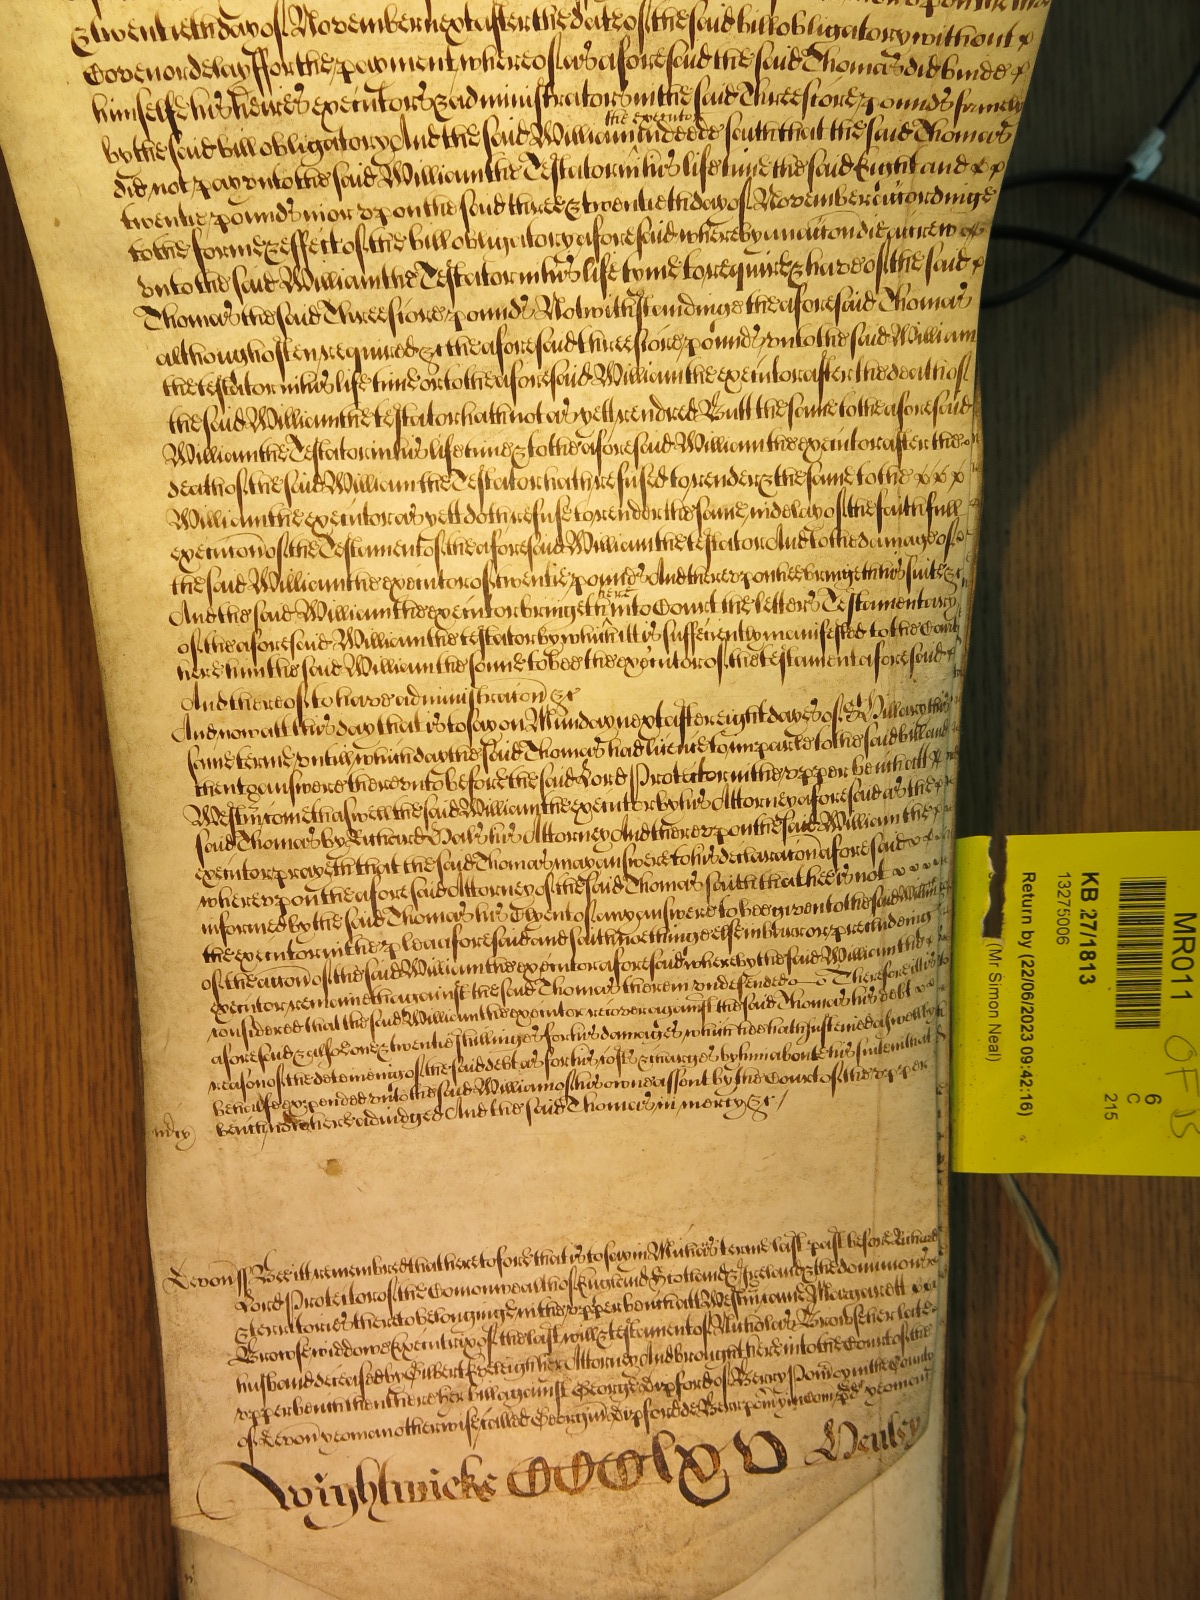 & twentieth day of November next after the date of the said bill obligatory without
Coven or delay ffor the payment whereof as aforesaid the said Thomas did binde
himselfe his heires executors & administrators in the said Threescore pounds firmely
by the said bill obligatory And the said William the executor indeede saith that the said Thomas
did not pay unto the said William the Testator in his life time the said Eight and
twentie pounds in or upon the said three & twentieth day of November accordinge
to the forme & effect of the bill obligatory aforesaid whereby an accon did accrew
unto the said William the Testator in his life tyme to require & have of the said
Thomas the said Threescore pounds Notwithstandinge the aforesaid Thomas
although often required &c the aforesaid threescore pounds unto the said William
the testator in his life time or to the aforesaid William the executor after the death of
the said William the testator hath not as yett rendred Butt the same to the aforesaid
William the Testator in his life time & to the aforesaid William the executor after the
death of the said William the Testator hath refused to render & the same to the
William the executor as yett doth refuse to render the same in delay of the faithfull
execution of the Testament of the aforesaid William the testator And to the damage of
the said William the executor of twentie pounds And thereupon hee bringeth his suite &c
And the said William the executor bringeth here into Court the letters Testamentary
of the aforesaid William the testator by which itt is sufficiently manifested to the Court
here him the said William the sonne to bee the executor of the testament aforesaid
And thereof to have administracon &c
And now att this day that is to say on Munday next after eight dayes of St Hillary this
same terme untill which day the said Thomas had licence to imparle to the said bill and
then to answere thereunto before the said Lord Protector in the upper bench att
Westm come th aswell the said William the executor by his Attorney aforesaid as the
said Thomas by Richard Hals his Attorney And thereupon the said William the
executor prayeth that the said Thomas may answere to his declaracon aforesaid
whereupon the aforesaid Attorney of the said Thomas saith that hee is not
informed by the said Thomas his of any answere to bee given to the said William
the executor in the plea aforesaid and saith noethinge else in barr or precludeing
of the accon of the said William the executor aforesaid whereby the said William the
executor remaineth against the said Thomas therein undefended Therefore itt is
considered that the said William the executor recover against the said Thomas his debt
aforesaid & alsoe one & twentie shillinges for his damages which hee hath susteined aswell by
reason of the deteineinge of the said debt as for his costs & charges by him about his suite in that
behalfe expended unto the said William of his owne assent by the Court of the upper
bench now here adiudged And the said Thomas in mercy &c
Devon ss Bee itt remembred that heretofore that is to say in Michas terme last past before Richard
Lord Protector of the Comonwealth of England Scotland & Ireland & the dominions
& territories thereto belonginge in the upper bench att Westm came Margarett
Browse widdowe Executrix of the last will & testament of Nicholas Browse her late
husband deceased by Gilbert Eveleigh her Attorney And brought here into the Court of the
upper bench then there her bill against George of Berry Pomroy in the County
of Devon yeoman otherwise called Georgiu de Berrpomry in Com pd yeoman
Wightwicke CCClxv Henley
KB 27/1813
13275006
Return by (22/06/2023 09:42:16)
(Mr Simon Neal)
MR011
6
C
215